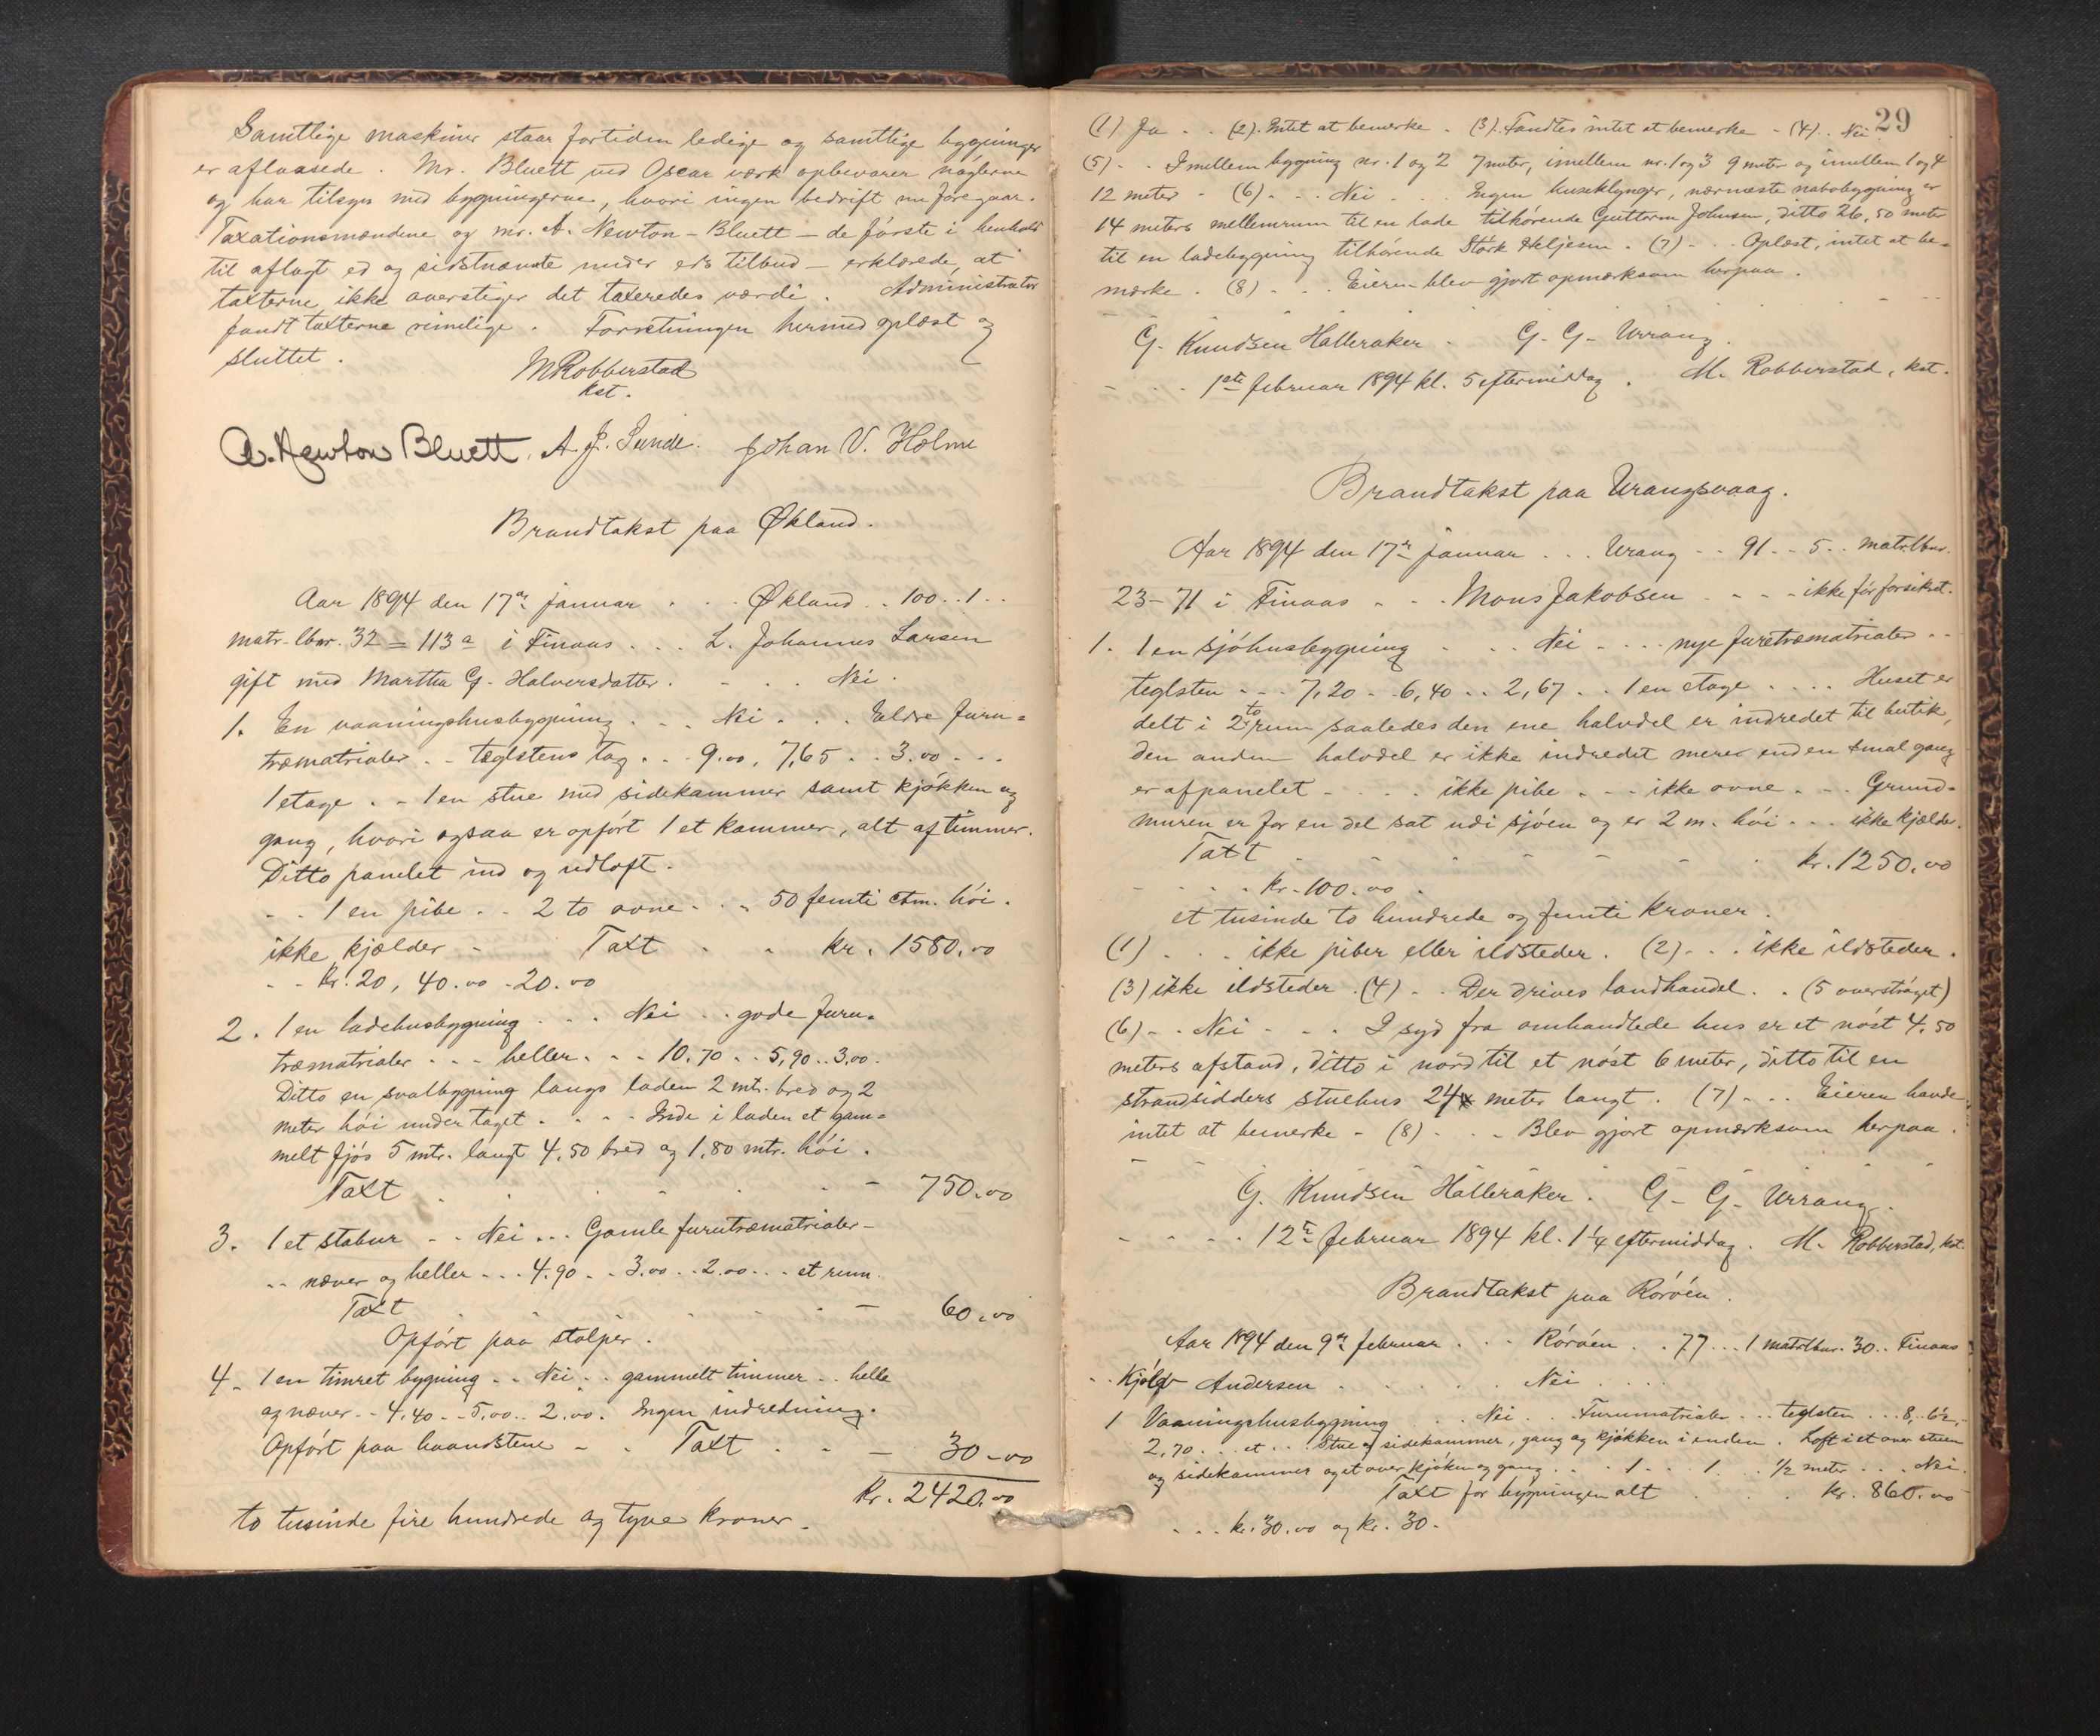 Samtlige maskiner staar fortiden ledige og samtlige bygninger
er aflaasede. Mr. Bluett ved Oscar værk opbevarer nøglerne
og har tilsyn med bygningerne, hvori ingen bedrift nu foregaar.
Taxationsmændene og mr. A. Newton-Bluett – de første i henhold
til aflagt ed og sidstnævnte under eds tilbud – erklærede, at
taxterne ikke overstiger det taxeredes værdi. Administrator
fandt taxterne rimelige. Forretningen hermed oplæst og
sluttet.
MRobberstad
kst.
A. Newton Bluett. A. J. Sunde. Johan V. Holme
Brandtakst paa Økland.
Aar 1894 den 17de januar . . . Økland . . 100 . . 1 . .
matr. lbnr. 32 = 113a i Finaas . . . L. Johannes Larsen
gift med Martha G. Halversdatter. - . . . Nei.
1. En vaaningshusbygning . . . Nei . . . Eldre furu-
træmatrialer . . teglstens tag . . . 9.00, 7,65 . . 3.00 . . .
1 etage . . 1 en stue med sidekammer samt kjøkken og
gang, hvori ogsaa er opført 1 et kammer, alt af tømmer.
Ditto panelet ind og udløft.
. . 1 en pibe . . 2 to ovne . . . 50 femti ctm. høi.
ikke kjælder - Taxt . . kr. 1580.00
. . kr. 20, 40.00 - 20.00
2. 1 en ladehusbygning . . . Nei . . gode furu-
træmatrialer . . . heller . . . 10.70 . . 5,90 . . 3,00.
Ditto en svalbygning langs laden 2 mt. bred og 2
meter høi under taget . . . . Inde i laden et gam-
melt fjøs 5 mtr. langt 4,50 bred og 1,80 mtr. høi.
Taxt . . . . . - 750.00
3. 1 et stabur . . Nei . . . Gamle furutræmatrialer -
. . næver og heller . . . 4.90 . . 3.00 . . 2.00 . . . et rum.
Taxt . . . . . - 60.00
Opført paa stolper.
4. 1 en timret bygning . . Nei . . gammelt tømmer . . helle
og næver . . 4,40 . . 5,00 . . 2,00. Ingen indredning.
Opført paa haandstene - . Taxt . . - 30.00
Kr. 2420.00
to tusinde fire hundrede og tyve kroner.
29
(1) Ja . . (2). Intet at bemerke . (3). Fandtes intet at bemerke - (4) . . Nei
(5) - . Imellem bygning nr. 1 og 2 7 meter, imellem nr. 1 og 3 9 meter og imellem 1 og 4
12 meter - (6) - . . Nei . . . Ingen huseklynger, nærmeste nabobygning er
14 meters mellemrum til en lade tilhørende Guttorm Johnsen, ditto 26,50 meter
til en ladebygning tilhørende Størk Heljesen. (7) - . . Oplæst, intet at be-
mærke. (8) - . . . Eieren blev gjort opmærksom herpaa.
G. Knudsen Halleraker . G. G. Urrang.
- . . . 1ste februar 1894 kl. 5 eftermiddag. M. Robberstad, kst.
Brandtakst paa Urangsvaag.
Aar 1894 den 17de januar . . . Urang . . 91 . . 5 . . matrlbnr.
23-71 i Finaas . . . Mons Jakobsen . . . ikke før forsikret.
1. 1 en sjøhusbygning . . . Nei . . . nye furetræmatrialer . .
teglsten . . . 7,20 . . 6,40 . . 2,67 . . 1 en etage . . . . Huset er
delt i 2 to rum saaledes den ene halvdel er indredet til butik,
den anden halvdel er ikke indredet merer end en smal gang
er afpanelet - . . . ikke pibe . . . ikke ovne . . . Grund-
muren er for en del sat udi sjøen og er 2 m. høi . . . ikke kjælder.
Taxt . . . . . . kr. 1250.00
. . . . kr. 100.00 .
et tusinde to hundrede og femti kroner.
(1) . . . ikke piber eller ildsteder. (2) - . . ikke ildsteder.
(3) ikke ildsteder. (4) - . Der drives landhandel. . (5 overstrøget)
(6) - . Nei - . . I syd fra omhandlede hus er et nøst 4,50
meters afstand, ditto i nord til et nøst 6 meter, ditto til en
strandsidders stuehus 24 meter langt. (7) - . . Eieren havde
intet at bemerke - (8) - . . Blev gjort opmærksom herpaa.
G. Knudsen Halleraker. G. G. Urrang.
- . . . 12te februar 1894 kl. 1 1/4 eftermiddag. M. Robberstad, kst.
Brandtakst paa Rørøen.
Aar 1894 den 9de februar . . . Rørøen . . 77 . . . 1 matrlbnr. 30 . . Finaas
. . Andersen . . . . . Nei . . . .
1 Vaaningshusbygning . . . Nei . . Furumatrialer . . . teglsten . . . 8,
2,70 . . . et . . . Stue, sidekammer, gang og kjøkken i enden. Loft i et over stuen
og sidekammer og et over kjøken og gang . . . 1 . . . 1 . . 1/2 meter . . . Nei.
Taxt for bygningen alt . . . kr. 860.00
. . . kr. 30.00 og kr. 30.